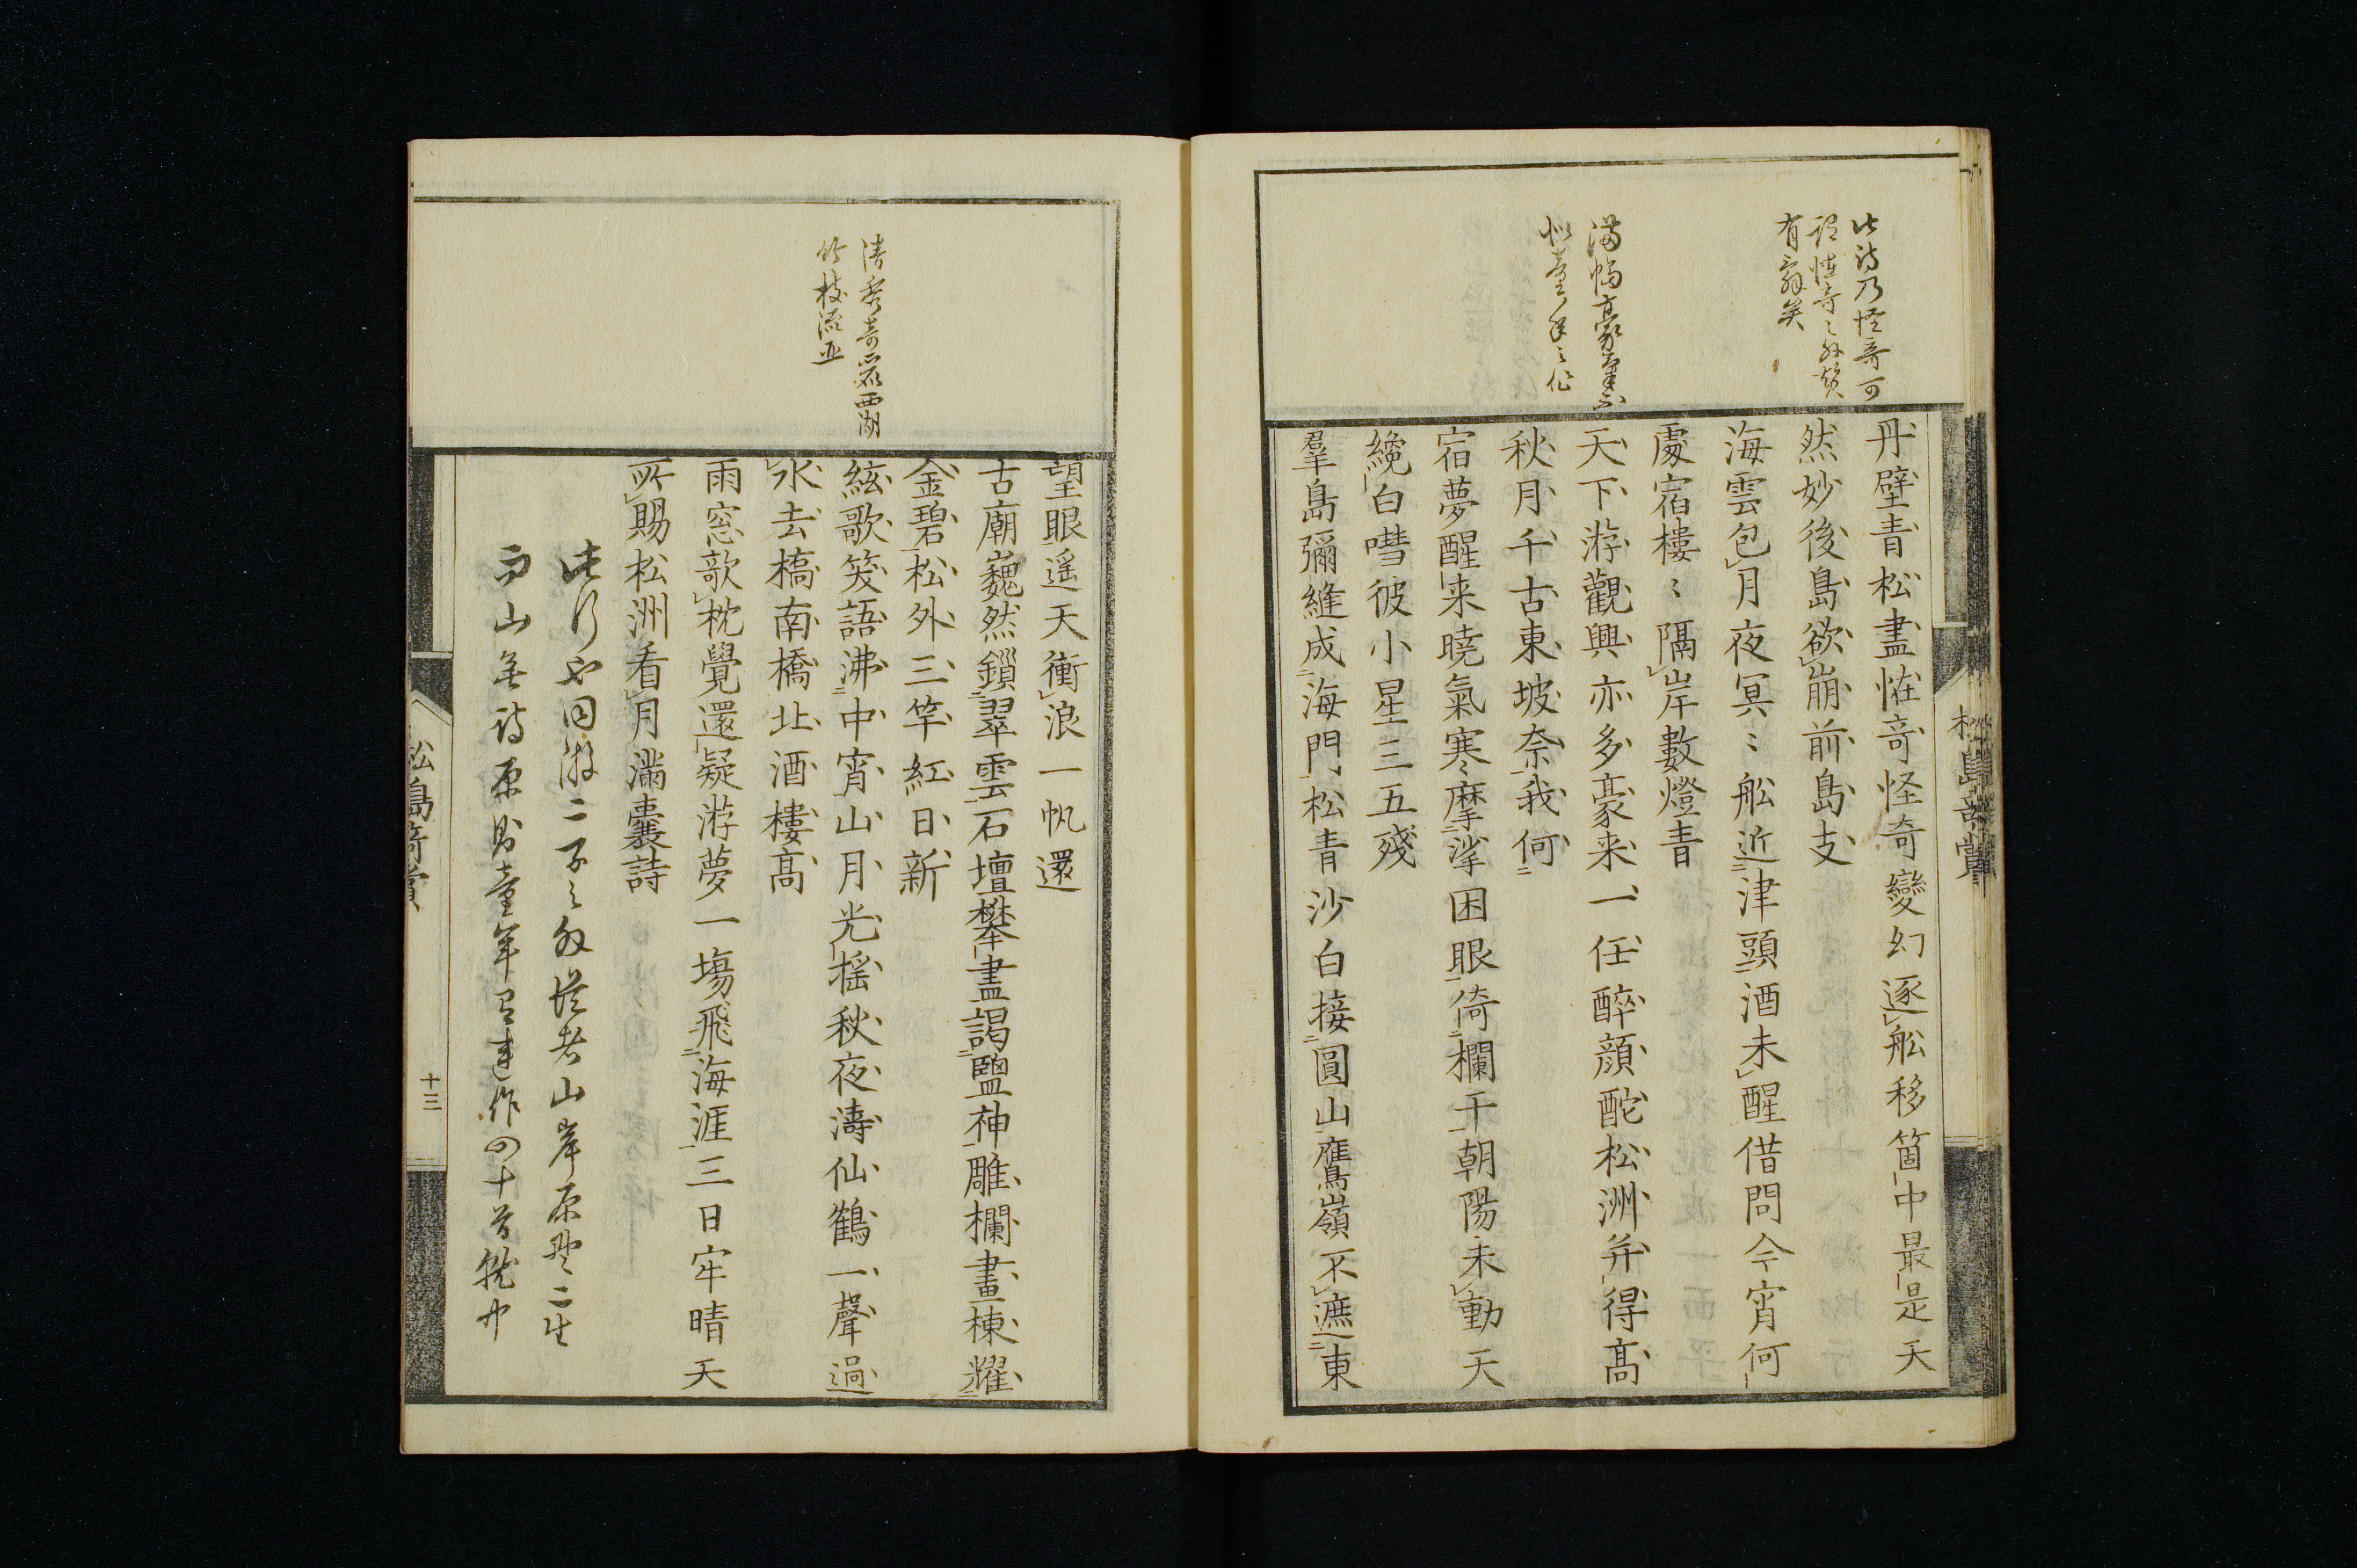 此詩乃怪奇可
有齋矣
滿幅豪氣不
似童年之作
丹壁青松盡恠竒怪奇變幻逐舩移箇中最是天
然妙後島欲崩前島支
海雲包月夜冥〻舩近津頭酒未醒借問今宵何
處宿樓〻隔岸數燈青
天下游觀興亦多豪来一任醉顔酡松洲并得髙
秋月千古東坡奈我何
宿夢醒来曉氣寒摩挲困眼倚欄干朝陽未動天
纔白嘒彼小星三五殘
羣島彌縫成海門松青沙白接圓山鷹嶺不遮東
松島竒賞
清秀奇麗西湖
竹枝流亜
望眼遥天衝浪一帆還
古廟巍然鎖翠雲石壇攀盡謁鹽神雕欄畫棟耀
金碧松外三竿紅日新
絃歌笑語沸中宵山月光揺秋夜濤仙鶴一聲過
水去橋南橋北酒樓髙
雨窓欹枕覺還疑游夢一塲飛海涯三日牢晴天
所賜松洲看月滿囊詩
此行也同游二子之外從者山岸原野二生
而山無詩原則童年有遠作四十首就中
松島竒賞
十三